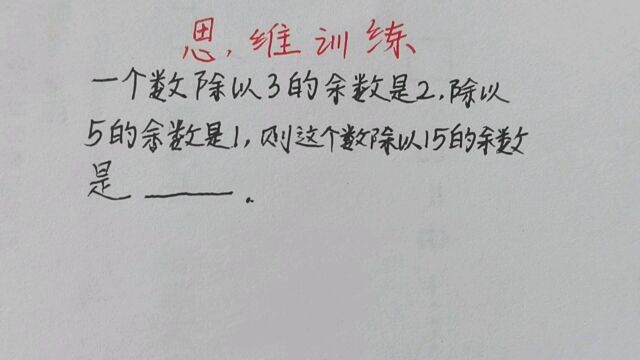 思维训练
一个数除以3的余数是2,除以
5的余数是1,则这个数除以15的余数
是______.